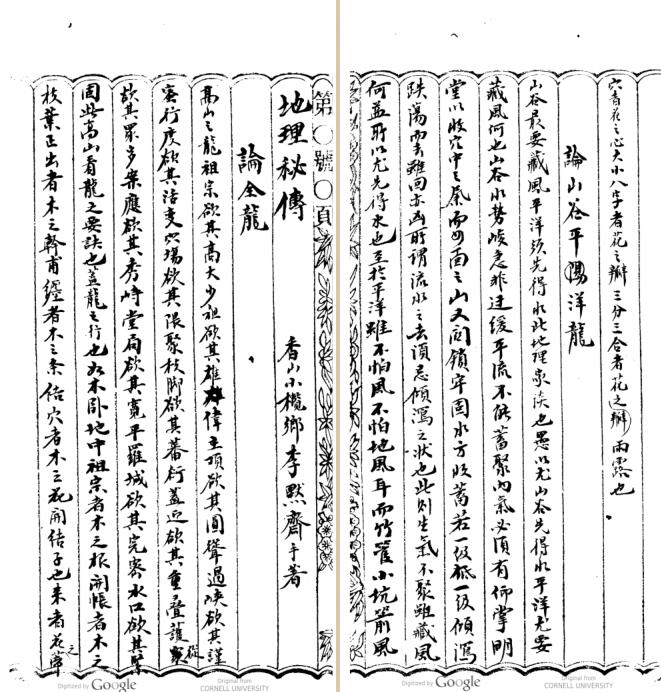 第〇號〇頁
地理秘傳 香山小欖鄉李默齋手著
論全龍
高山之龍祖宗欲其高大少祖欲其雄偉主頂欲其圓聳過峽欲其謹
密行度欲其活变穴場欲其隈聚枝脚欲其蕃衍蓋迎欲其重疊護從
欲其眾多案應欲其秀峙堂局欲其寬平羅城欲其完密水口欲其緊
固此高山看龍之要訣也蓋龍之行也如木臥地中祖宗者木之根開帳者木之
枝葉正出者木之幹甫纏者木之条結穴者木之花開結子也来者花之
穴者花之心大小八字者花之瓣三分三合者花之瓣雨露也
論山谷平陽洋龍
山谷最要藏風平洋須先得水此地理家談也愚以尤山谷先得水平洋尤要
藏風何也山谷水勢峻急非迂緩平流不能蓄聚內氣必須有仰掌明
堂以收穴中之氣而四面之山又関鎖牢固水方收蓄若一級低一級傾瀉
跌蕩雖回亦凶所謂流水之去須忌傾瀉之狀也此則生氣不聚雖藏風
何益所以尤先得水也至於平洋雖不怕風不怕地風耳而竹小坑箭風
Digitized by Google
Original from CORNELL UNIVERSITY
Digitized by Google
Original from CORNELL UNIVERSITY